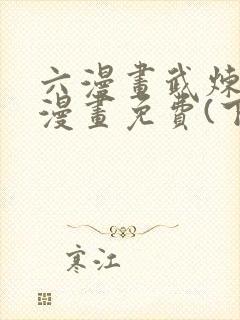 六漫畫武煉
漫畫免費(下
寒江